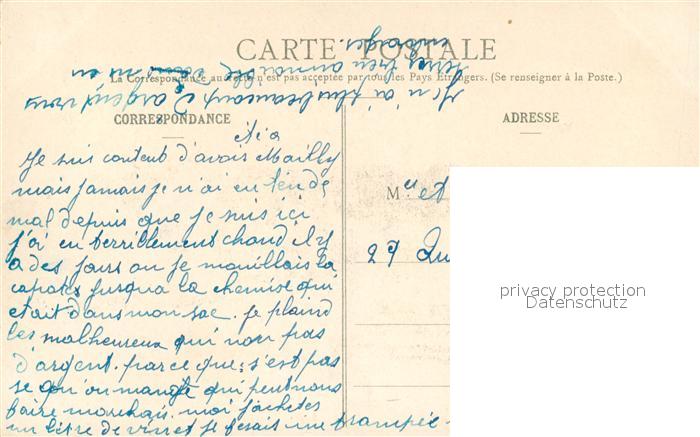 CARTE POSTALE
La Correspondance au recto n'est pas acceptée par tous les Pays Etrangers. (Se renseigner à la Poste.)
CORRESPONDANCE
ADRESSE
Je suis contend d'avois Mailly
mais jamais je n'ai eu ten de
mal depuis que je suis ici
j'ai eu terrillement chaud il y
a des jours ou je mouillais la
capotes jusqua la chemise qui
etait dans mon sac. je plaind
les malheureux qui non pas
d'argent. parce que s'est pas
se qu'on mange qui peut nous
faire marchais. moi j'achetes
un litre de vin et je fesais une trempée
Je n'ai plus beaucoup d'argent vous
M et
29
privacy protection
Datenschutz